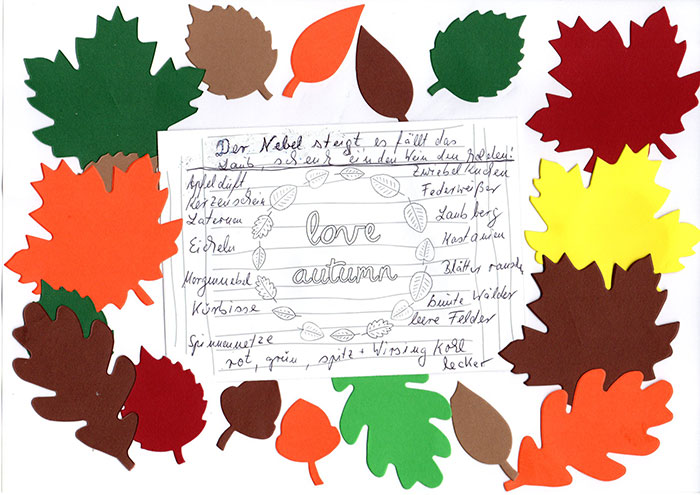 Der Nebel steigt, es fällt das
Laub, schenk ein den Wein den Holden!
Apfelduft
Kerzenschein
Laternen
Eicheln
Morgennebel
Kürbisse
Spinnennetze
love
autumn
Zwiebelkuchen
Federweißer
Laubberg
Kastanien
Blätter rausch
bunte Wälder
leere Felder
rot, grün, spitz + Wirsing Kohl
lecker